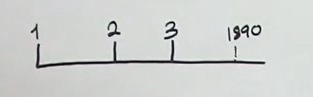 1 2 3 1990